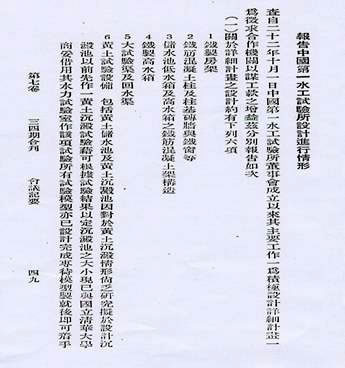 報告中國第一水工試驗所設計進行情形
查自二十二年十月一日中國第一水工試驗所董事會成立以來其主要工作一為積極設計詳細計畫一
為徵求合作機關以謀工款之增益茲分別報告如次
（一）關於詳細計畫之設計約有下列六項
1 鐵製房架
2 鐵筋混凝土柱及柱基磚牆與鐵窗等
3 儲水池低水箱及高水箱之鐵筋混凝土架構造
4 鐵製高水箱
5 大試驗渠及回水渠
6 黃土試驗設備 包括黃土儲水池及黃土沉澱池因對於黃土沉澱情形尚乏研究擬於設計沉
澱池以前先作一黃土沉澱試驗藉可根據試驗結果以定沉澱池之大小現已與國立清華大學
商妥借用其水力試驗室作該項試驗所有試驗模型亦已設計完成專待模型製就後即可着手
第七卷 三四期合刊 會議記要 四九